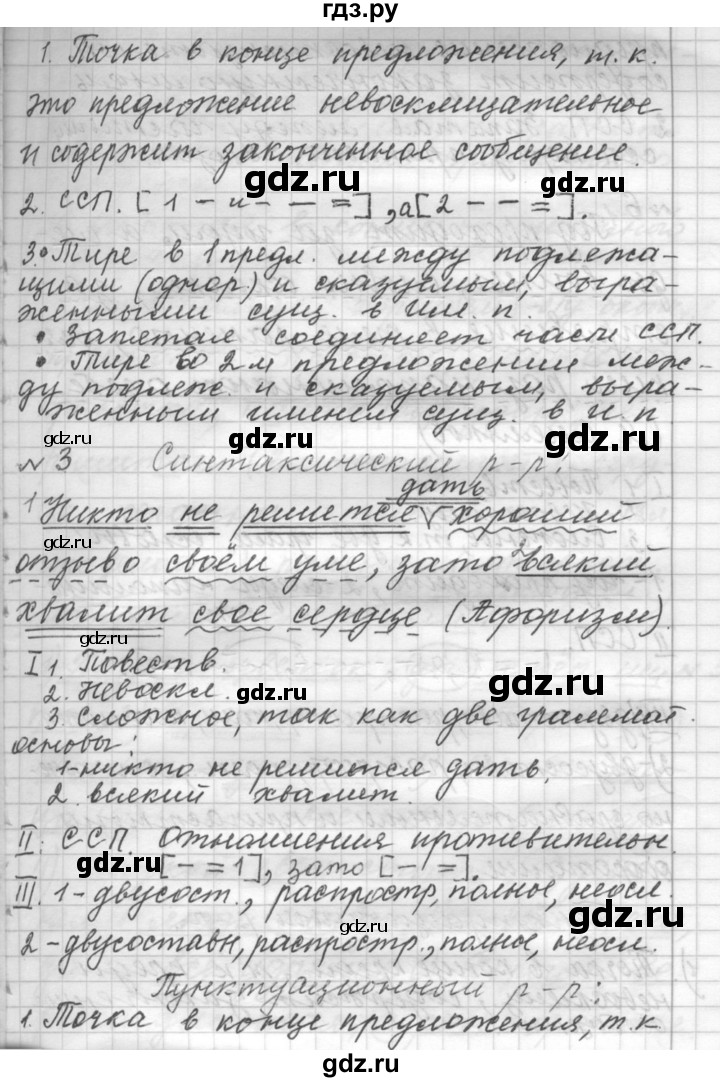 гдз.ру
1. Точка в конце предложения, т.к.
это предложение невосклицательное
и содержит законченное сообщение.
gdz.ru
2. ССП. [ 1 – и – — =], а[ 2 – – =].
gdz.ru gdz.ru
3.• Тире в 1 предл. между подлежа-
щими (однор.) и сказуемым, выра-
женными сущ. в им. п.
• Запятая соединяет части ССП.
• Тире во 2м предложении меж-
ду подлеж. и сказуемым, выра-
женным именем сущ. в и. п
gdz.ru gdz.ru
№ 3 Синтаксический р-р:
дать
1 Никто не решится √ хороший
gdz.ru
отзыв о своём уме, зато 2 всякий
хвалит свое сердце (Афоризм).
gdz.ru gdz.ru
I 1. Повеств.
2. Невоскл.
gdz.ru gdz.ru
3. Сложное, так как две граммат.
основы:
1-никто не решится дать,
gdz.ru
2. всякий хвалит.
gdz.ru
II. ССП. Отношения противительн.
[ – = 1], зато [ – =].
gdz.ru
III. 1-двусост., распростр, полное, неосл.
gdz.ru
2-двусоставн, распростр., полное, неосл.
Пунктуационный р-р:
gdz.ru
1. Точка в конце предложения, т.к
gdz.ru